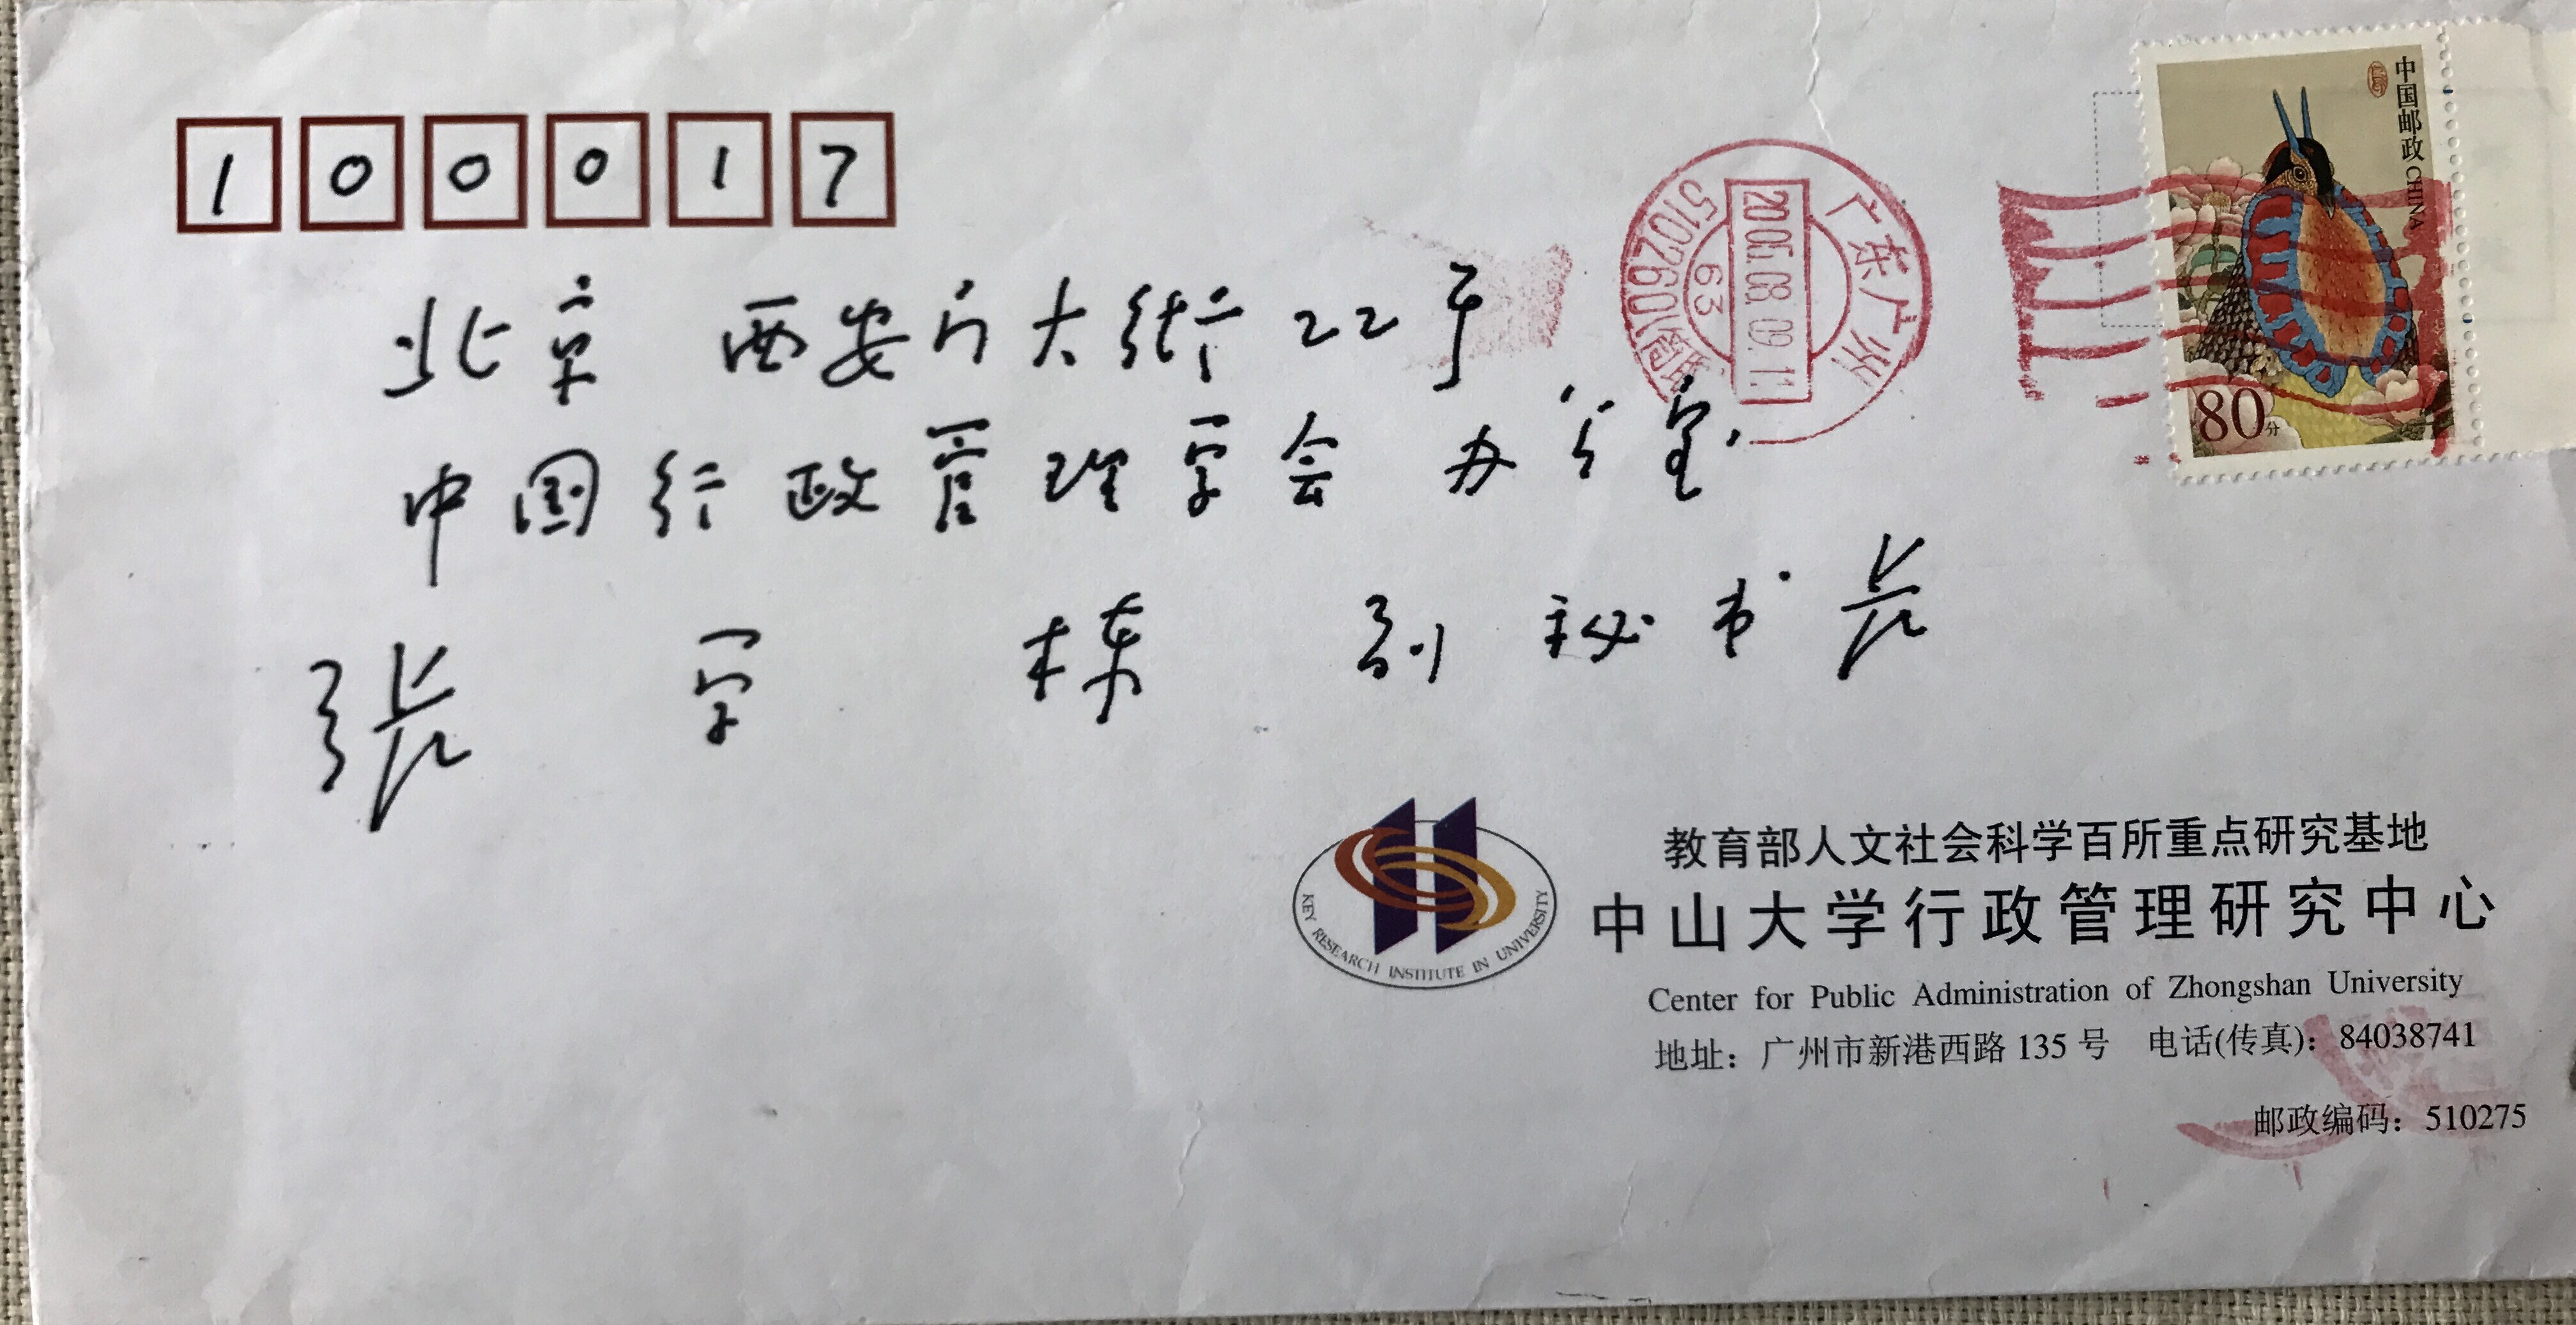 100017
北京 西安门大街22号
中国行政管理学会 办公室
张学栋 副秘书长
中国邮政 CHINA
80分
广东广州
2005.08.09.11
63
51026001
KEY RESEARCH INSTITUTE IN UNIVERSITY
教育部人文社会科学百所重点研究基地
中山大学行政管理研究中心
Center for Public Administration of Zhongshan University
地址：广州市新港西路 135 号 电话(传真)：84038741
邮政编码：510275